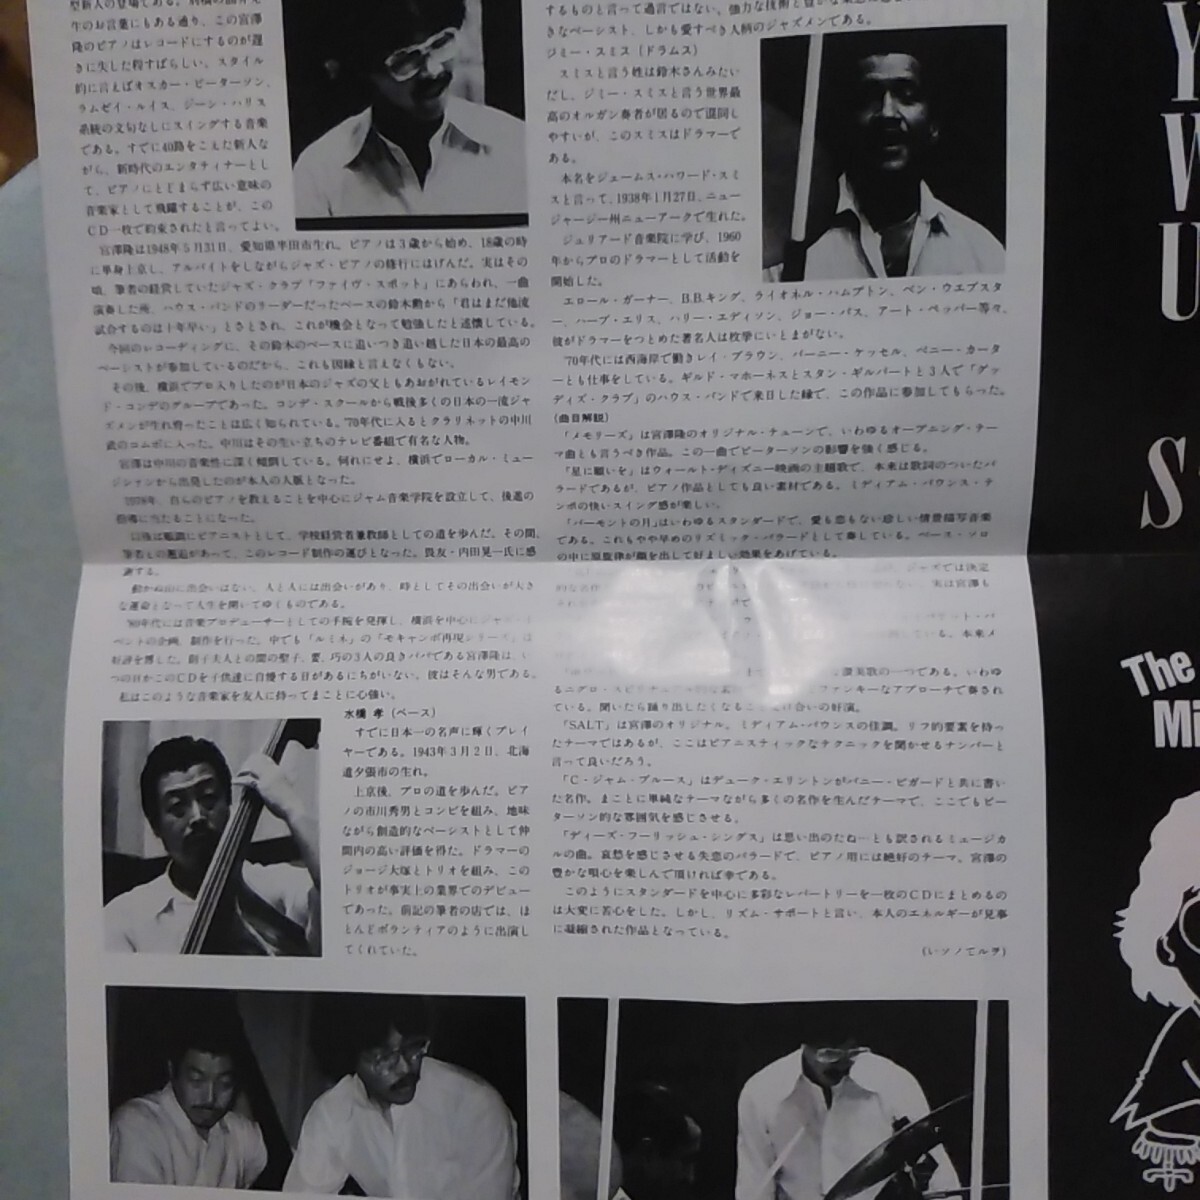 生のお言葉にもある通り、この宮澤
隆のピアノはレコードにするのが遅
きに失した程すばらしい。スタイル
的に言えばオスカー・ピーターソン、
ラムゼイ・ルイス、ジーン・ハリス
系統の文句なしにスイングする音楽
である。すでに40路をこえた新人な
がら、新時代のエンタティナーとし
て、ピアノにとどまらず広い意味の
音楽家として飛躍することが、この
CD一枚で約束されたと言ってよい。
宮澤隆は1948年5月31日、愛知県半田市生れ。ピアノは3歳から始め、18歳の時
に単身上京し、アルバイトをしながらジャズ・ピアノの修行にはげんだ。実はその
頃、筆者の経営していたジャズ・クラブ「ファイヴ・スポット」にあらわれ、一曲
演奏した所、ハウス・バンドのリーダーだったベースの鈴木勲から「君はまだ他流
試合するのは十年早い」とさとされ、これが機会となって勉強したと述懐している。
今回のレコーディングに、その鈴木のベースに追いつき追い越した日本の最高の
ベーシストが参加しているのだから、これも因縁と言えなくもない。
その後、横浜でプロ入りしたのが日本のジャズの父ともあおがれているレイモン
ド・コンデのグループであった。コンデ・スクールから戦後多くの日本の一流ジャ
ズメンが生れ育ったことは広く知られている。'70年代に入るとクラリネットの中川
武のコンボに入った。中川はその生い立ちのテレビ番組で有名な人物。
宮澤は中川の音楽性に深く傾倒している。何れにせよ、横浜でローカル・ミュー
ジシャンから出発したのが本人の人脈となった。
1978年、自らのピアノを教えることを中心にジャム音楽学院を設立して、後進の
指導に当たることになった。
以後は順調にピアニストとして、学校経営者兼教師としての道を歩んだ。その間、
筆者との邂逅があって、このレコード制作の運びとなった。良友・内田晃一氏に感
謝する。
動かぬ山に出会いはない、人と人には出会いがあり、時としてその出会いが大き
な運命となって人生を開いてゆくものである。
'80年代には音楽プロデューサーとしての手腕を発揮し、横浜を中心にジャズ・イ
ベントの企画、制作を行った。中でも「ルミネ」の「モキャンボ再現シリーズ」は
好評を博した。創子夫人との間の聖子、要、巧の3人の良きパパである宮澤隆は、い
つの日かこのCDを子供達に自慢する日があるにちがいない。彼はそんな男である。
私はこのような音楽家を友人に持ってまことに心強い。
水橋 孝(ベース)
すでに日本一の名声に輝くプレイ
ヤーである。1943年3月2日、北海
道夕張市の生れ。
上京後、プロの道を歩んだ。ピア
ノの市川秀男とコンビを組み、地味
ながら創造的なベーシストとして仲
間内の高い評価を得た。ドラマーの
ジョージ大塚とトリオを組み、この
トリオが事実上の業界でのデビュー
であった。前記の筆者の店では、ほ
とんどボランティアのように出演し
てくれていた。
するものと言って過言ではない。強力な技術と豊かな
きなベーシスト、しかも愛すべき人柄のジャズメンである。
ジミー・スミス(ドラムス)
スミスと言う姓は鈴木さんみたい
だし、ジミー・スミスと言う世界最
高のオルガン奏者が居るので混同し
やすいが、このスミスはドラマーで
ある。
本名をジェームス・ハワード・スミ
スと言って、1938年1月27日、ニュー
ジャージー州ニューアークで生れた。
ジュリアード音楽院に学び、1960
年からプロのドラマーとして活動を
開始した。
エロール・ガーナー、B.B.キング、ライオネル・ハムプトン、ベン・ウエブスタ
ー、ハーブ・エリス、ハリー・エディソン、ジョー・パス、アート・ペッパー等々、
彼がドラマーをつとめた著名人は枚挙にいとまがない。
'70年代には西海岸で働きレイ・ブラウン、バーニー・ケッセル、ベニー・カータ
ーとも仕事をしている。ギルド・マホーネスとスタン・ギルバートと3人で「グッ
ディズ・クラブ」のハウス・バンドで来日した縁で、この作品に参加してもらった。
(曲目解説)
「メモリーズ」は宮澤隆のオリジナル・チューンで、いわゆるオープニング・テー
マ曲とも言うべき作品。この一曲でピーターソンの影響を強く感じる。
「星に願いを」はウォールト・ディズニー映画の主題歌で、本来は歌詞のついたバ
ラードであるが、ピアノ作品としても良い素材である。ミディアム・バウンス・テ
ンポの快いスイング感が楽しい。
「バーモントの月」はいわゆるスタンダードで、愛も恋もない珍しい情景描写音楽
である。これもやや早めのリズミック・バラードとして奏している。ベース・ソロ
の中に原旋律が顔を出して好ましい効果をあげている。
ジャズでは決定
的な名作 実は宮澤も
ケット・バ
ている。本来メ
讃美歌の一つである。いわゆ
るニグロ・スピリチュアル ファンキーなアプローチで奏され
ている。聞いたら踊り出したくなる 合いの好演。
「SALT」は宮澤のオリジナル。ミディアム・バウンスの佳調。リフ的要素を持っ
たテーマではあるが、ここはピアニスティックなテクニックを聞かせるナンバーと
言って良いだろう。
「C・ジャム・ブルース」はデューク・エリントンがバニー・ビガードと共に書い
た名作。まことに単純なテーマながら多くの名作を生んだテーマで、ここでもピー
ターソン的な雰囲気を感じさせる。
「ディーズ・フーリッシュ・シングス」は思い出のたね…とも訳されるミュージカ
ルの曲。哀愁を感じさせる失恋のバラードで、ピアノ用には絶好のテーマ。宮澤の
豊かな唄心を楽しんで頂ければ幸である。
このようにスタンダードを中心に多彩なレパートリーを一枚のCDにまとめるの
は大変に苦心をした。しかし、リズム・サポートと言い、本人のエネルギーが見事
に凝縮された作品となっている。
(いソノてルヲ)
Y
W
U
S
The
Mi